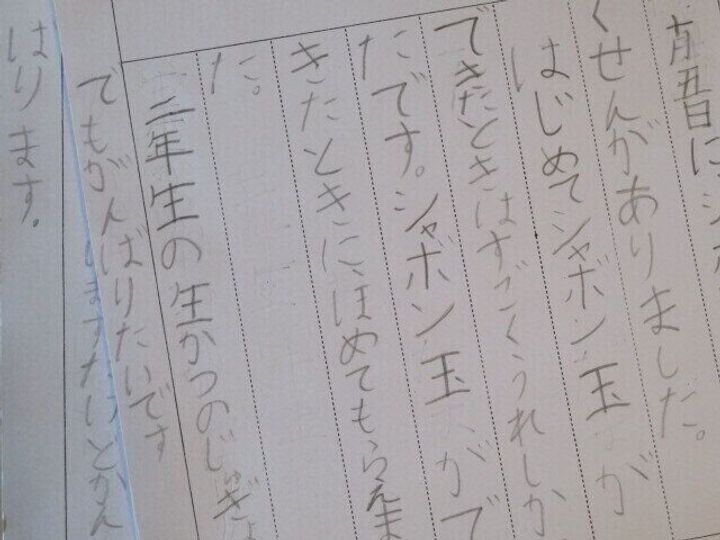 月五日にシ
くせんがありました。
はじめてシャボン玉が
できたときはすごくうれしか
たです。シャボン玉がで
きたときに、ほめてもらえま
た。
二年生の生かつのじゅぎょ
でもがんばりたいです
はります。